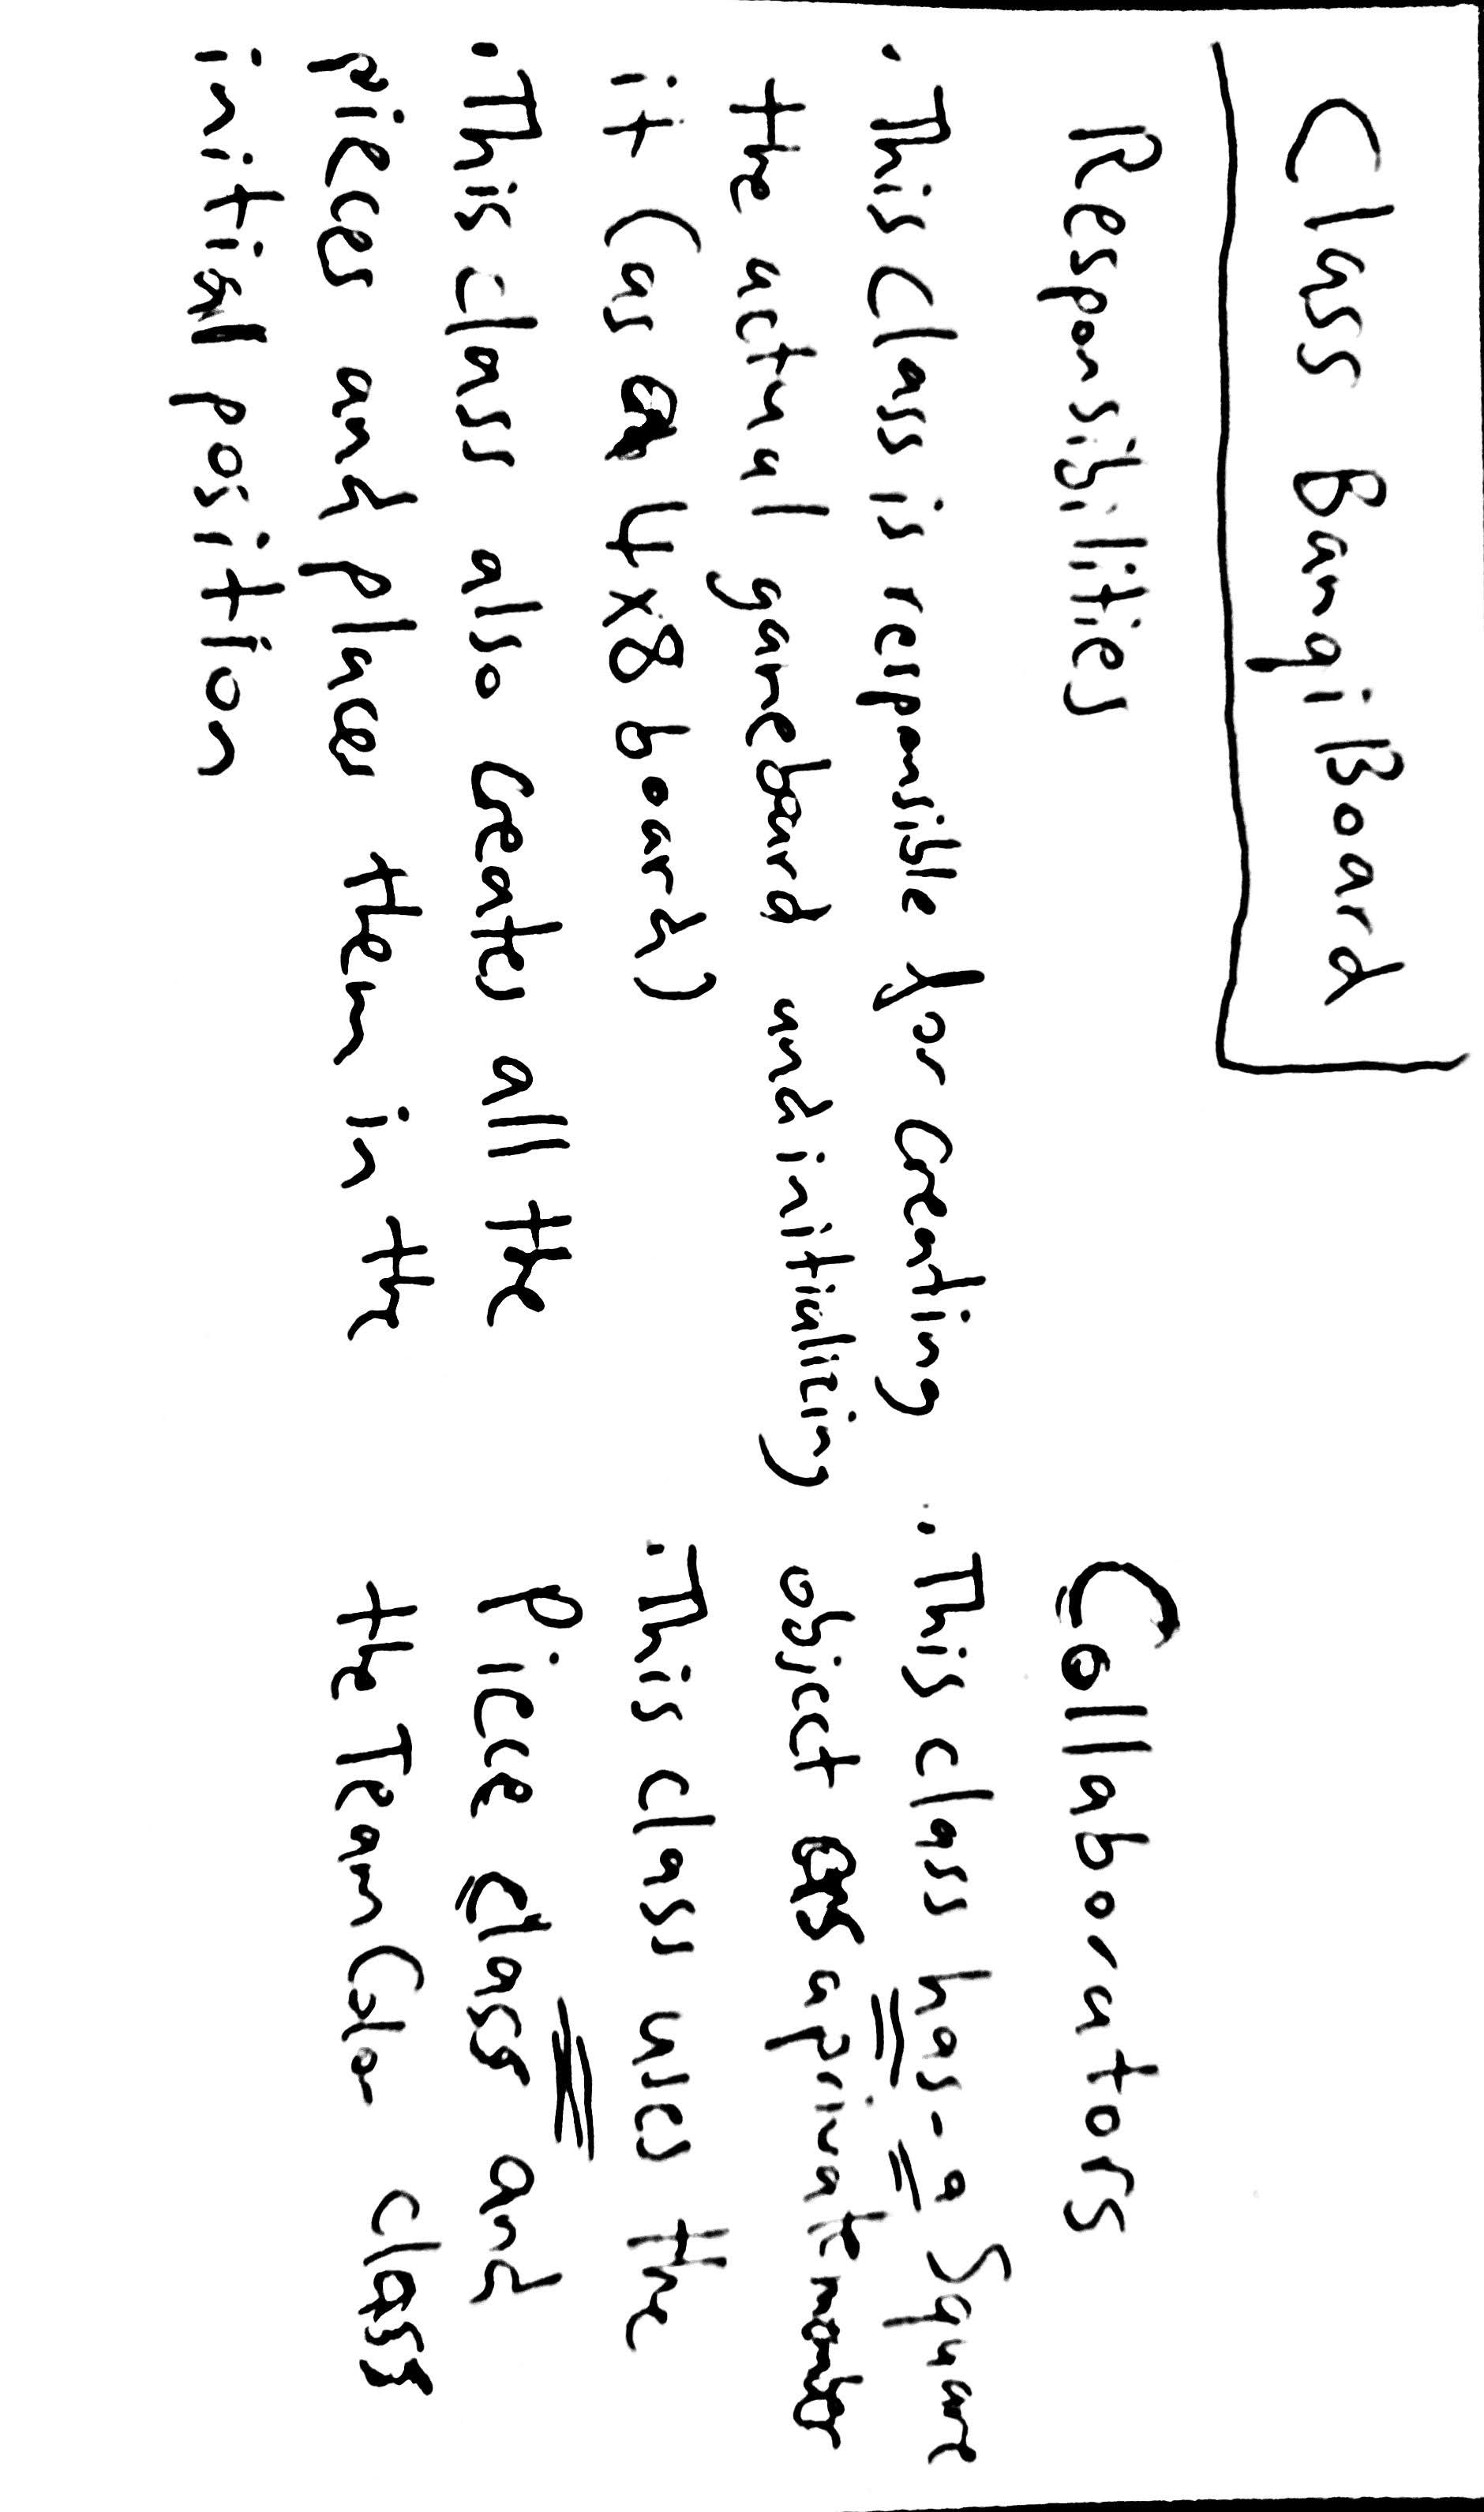 Class BanqiBoard
Responsibilities
• This Class is responsible for creating
the actual gameboard and initializing
it (as a 4x8 board)
• This class also creates all the
pieces and places them in the
initial position
Collaborators
• This class has-a Square
object as a private member
• This class uses the
Piece class and
the TeamColor class